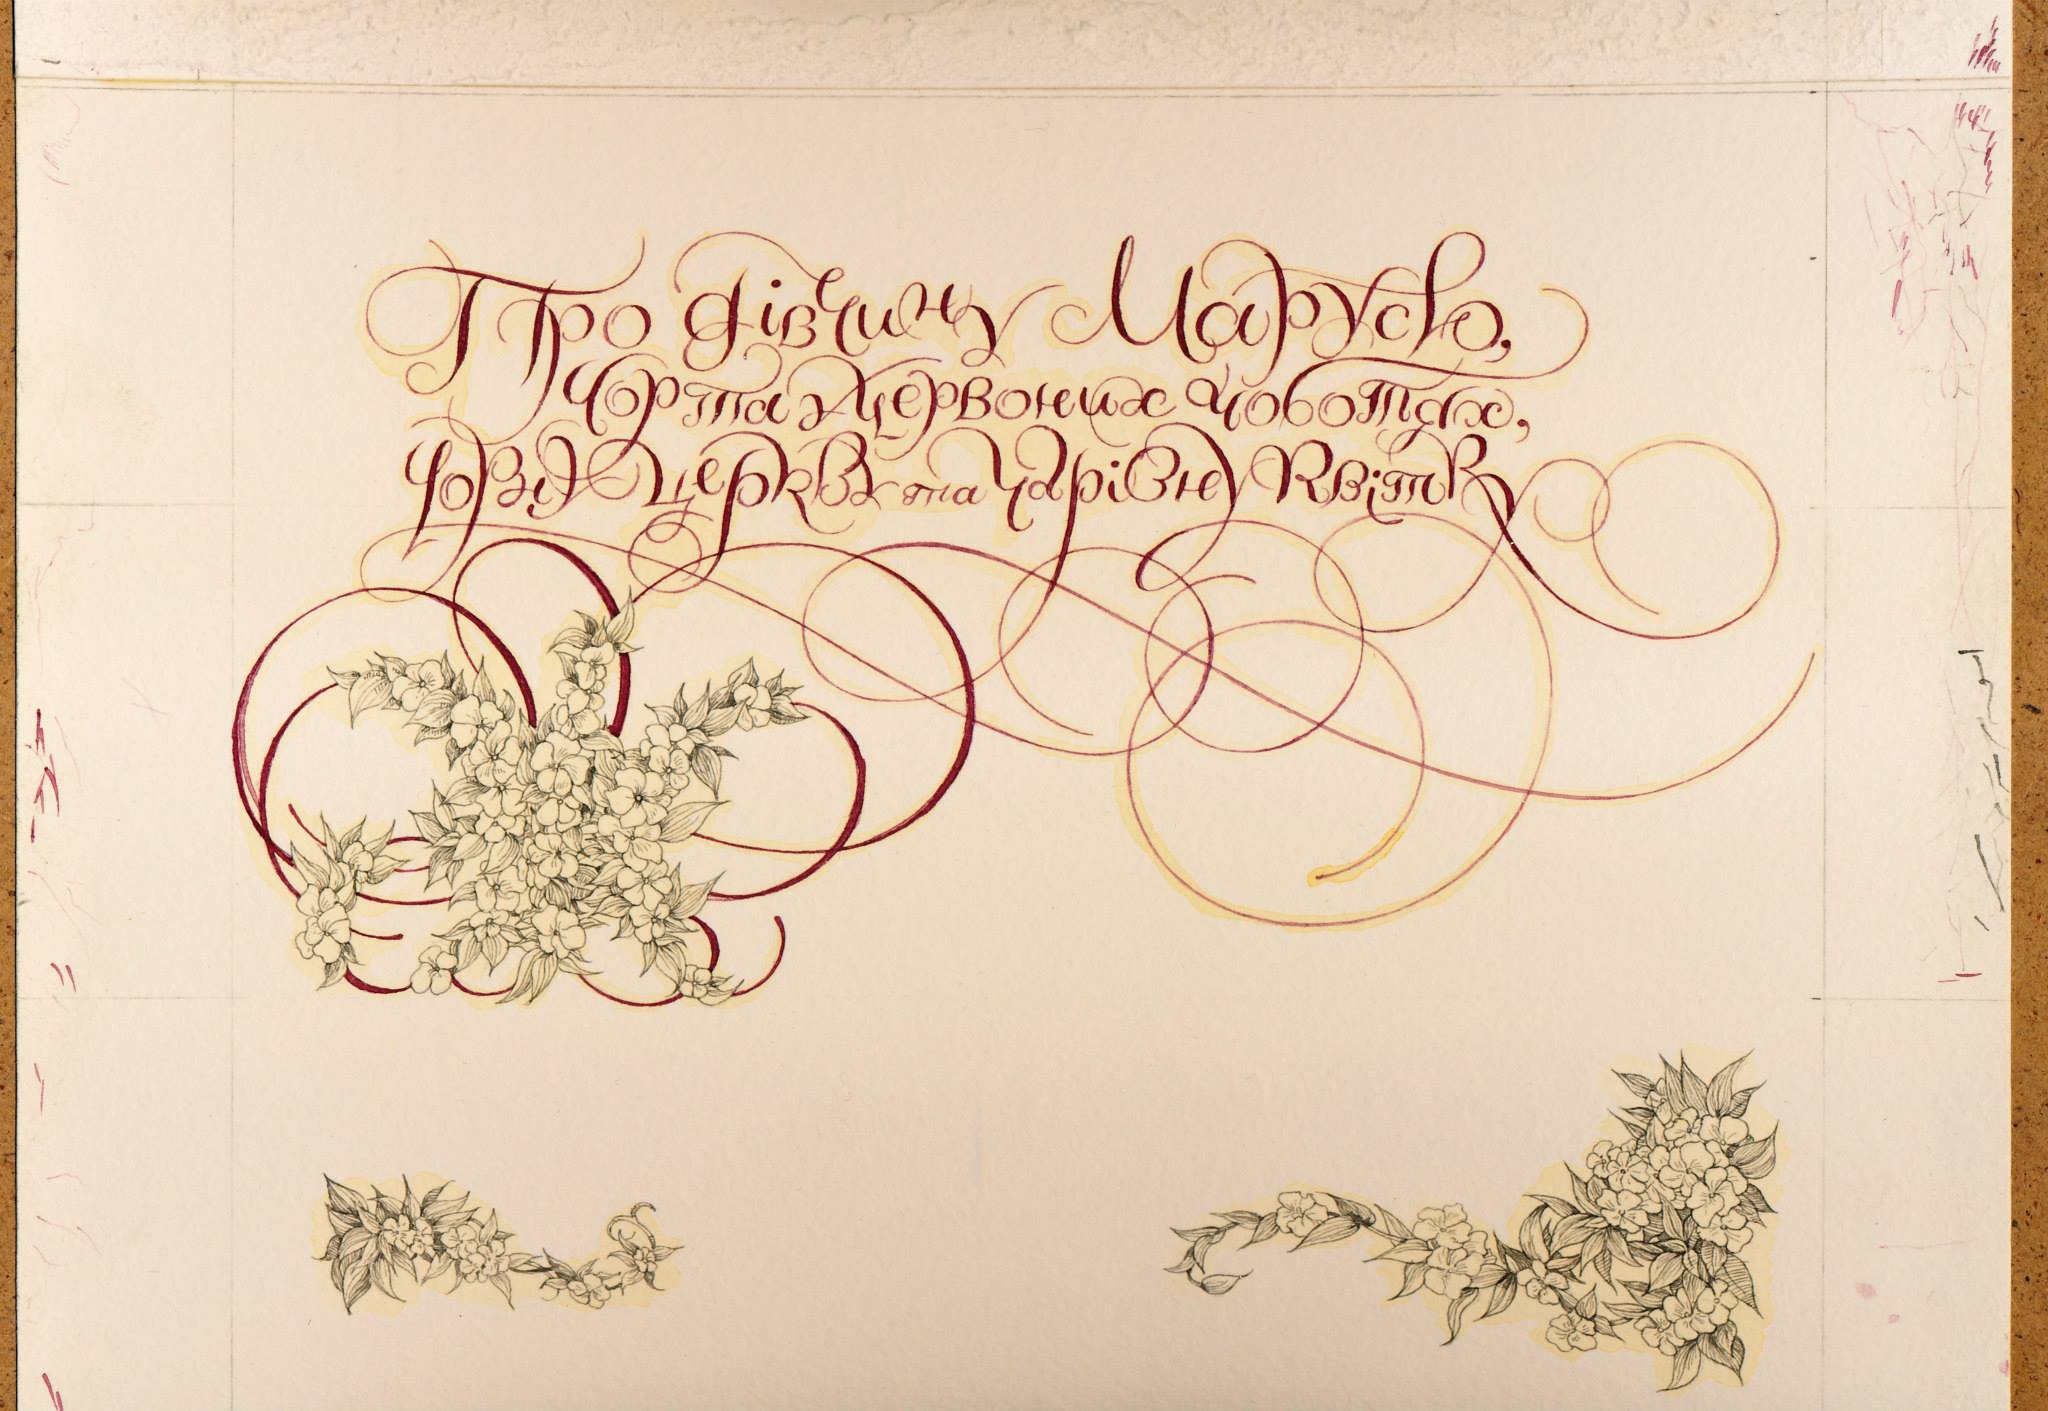 Про дівчину Марусю,
Чорта у Червоних Чоботях,
Чорну Церкву та Чарівну Квітку